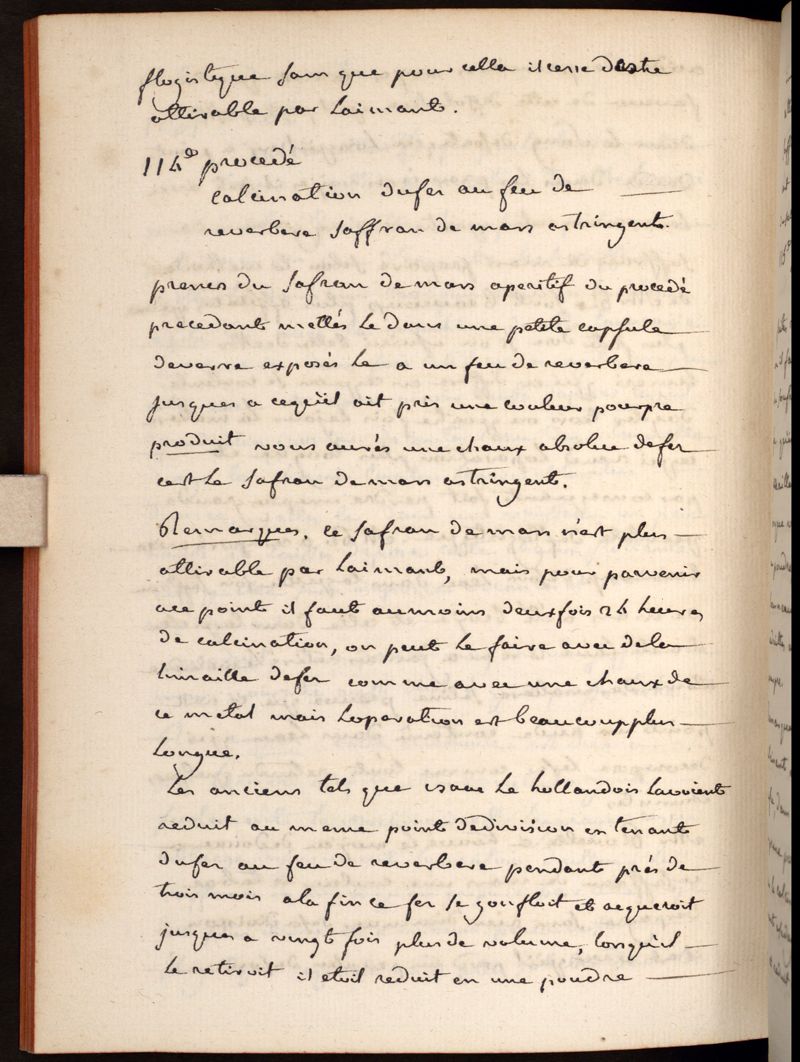 flogistique sans que pour cella il cesse destre
attirable par Laimant.
114e procedé
calcination dufer au feu de
reverbere saffran de mars astringent.
prenes du safran de mars aperitif du procedé
precedant mettés Le dans une petite capsule
deverre exposés Le a un feu de reverbere
jusques a cequ'il ait pris une couleur pourpre
produit vous aurés une chaux absolue defer
cest Le safran de mars astringent.
Remarques. ce safran de mars n'est plus
attirable par Laimant, mais pour parvenir
ace point il faut aumoins deux fois 24 heures
de calcination, on peut Le faire avec dela
limaille defer comme avec une chaux de
ce metal mais Loperation est beaucoup plus
Longue.
Les anciens tels que isaac Le hollandois Lavoient
reduit au meme point dedivision en tenant
dufer au feu de reverbere pendant prés de
trois mois ala fin ce fer se gonfloit et acqueroit
jusques a vingt fois plus de volume, lorsqu'il
Le retiroit il etoit reduit en une poudre